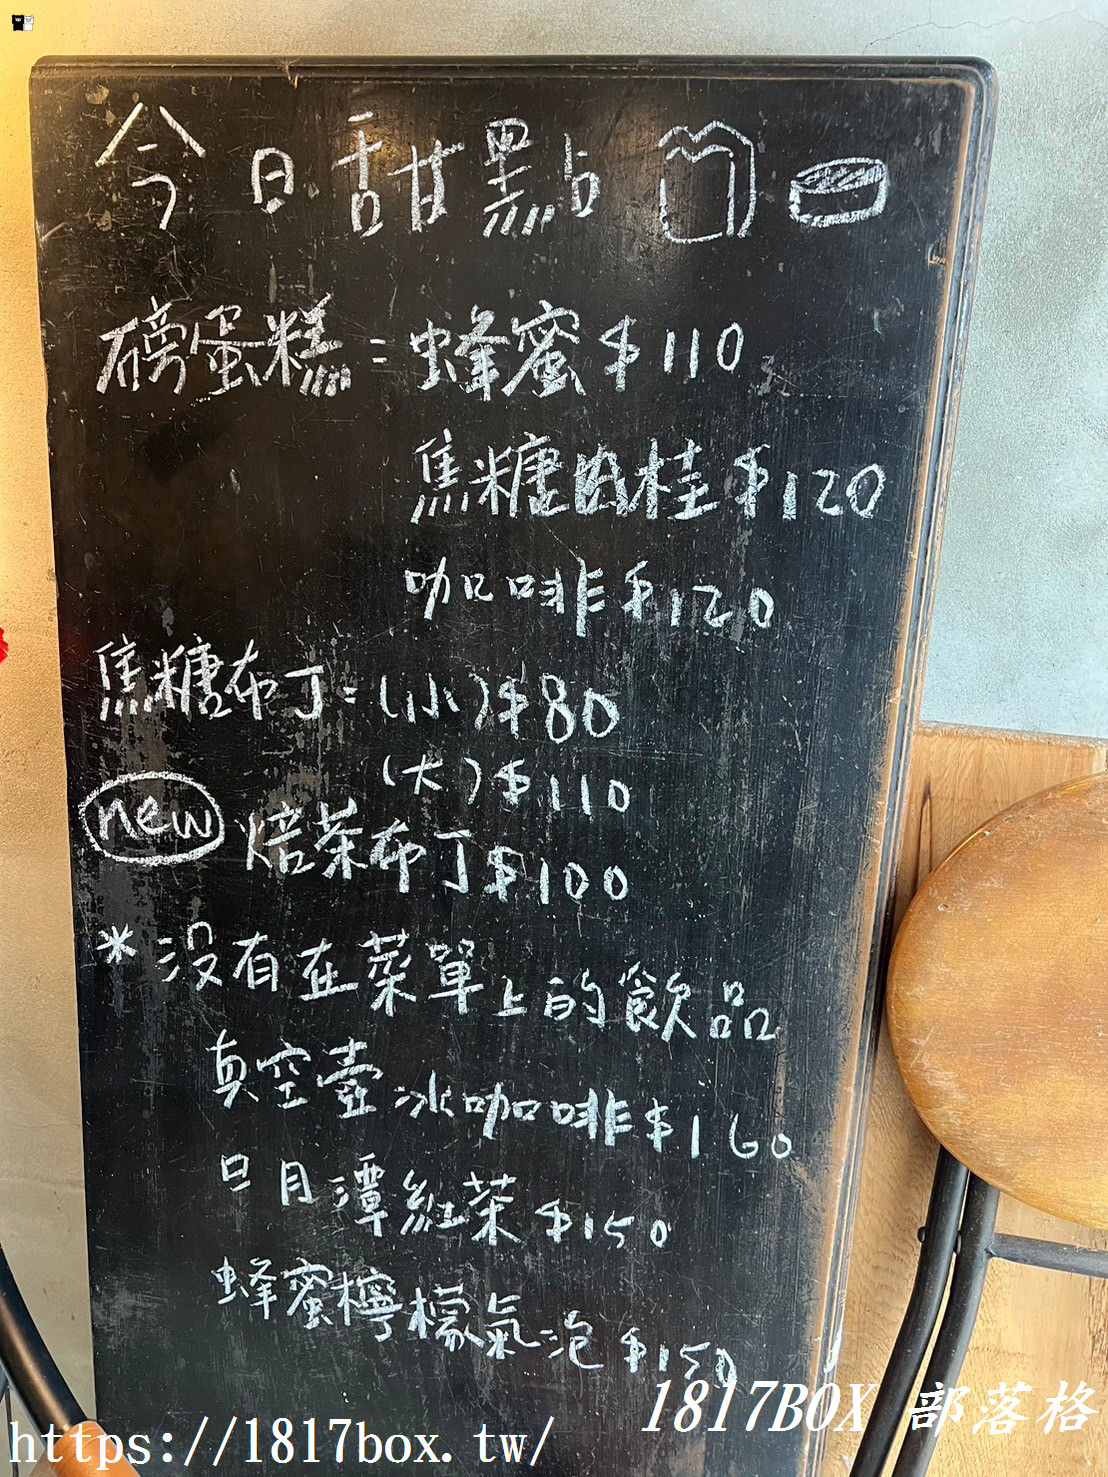 今日甜點
磅蛋糕：蜂蜜$110
焦糖肉桂$120
咖啡$120
焦糖布丁：(小)$80
(大)$110
new 焙茶布丁$100
*沒有在菜單上的飲品
真空壺冰咖啡$160
日月潭紅茶$150
蜂蜜檸檬氣泡$150
1817BOX 部落格
https://1817box.tw/